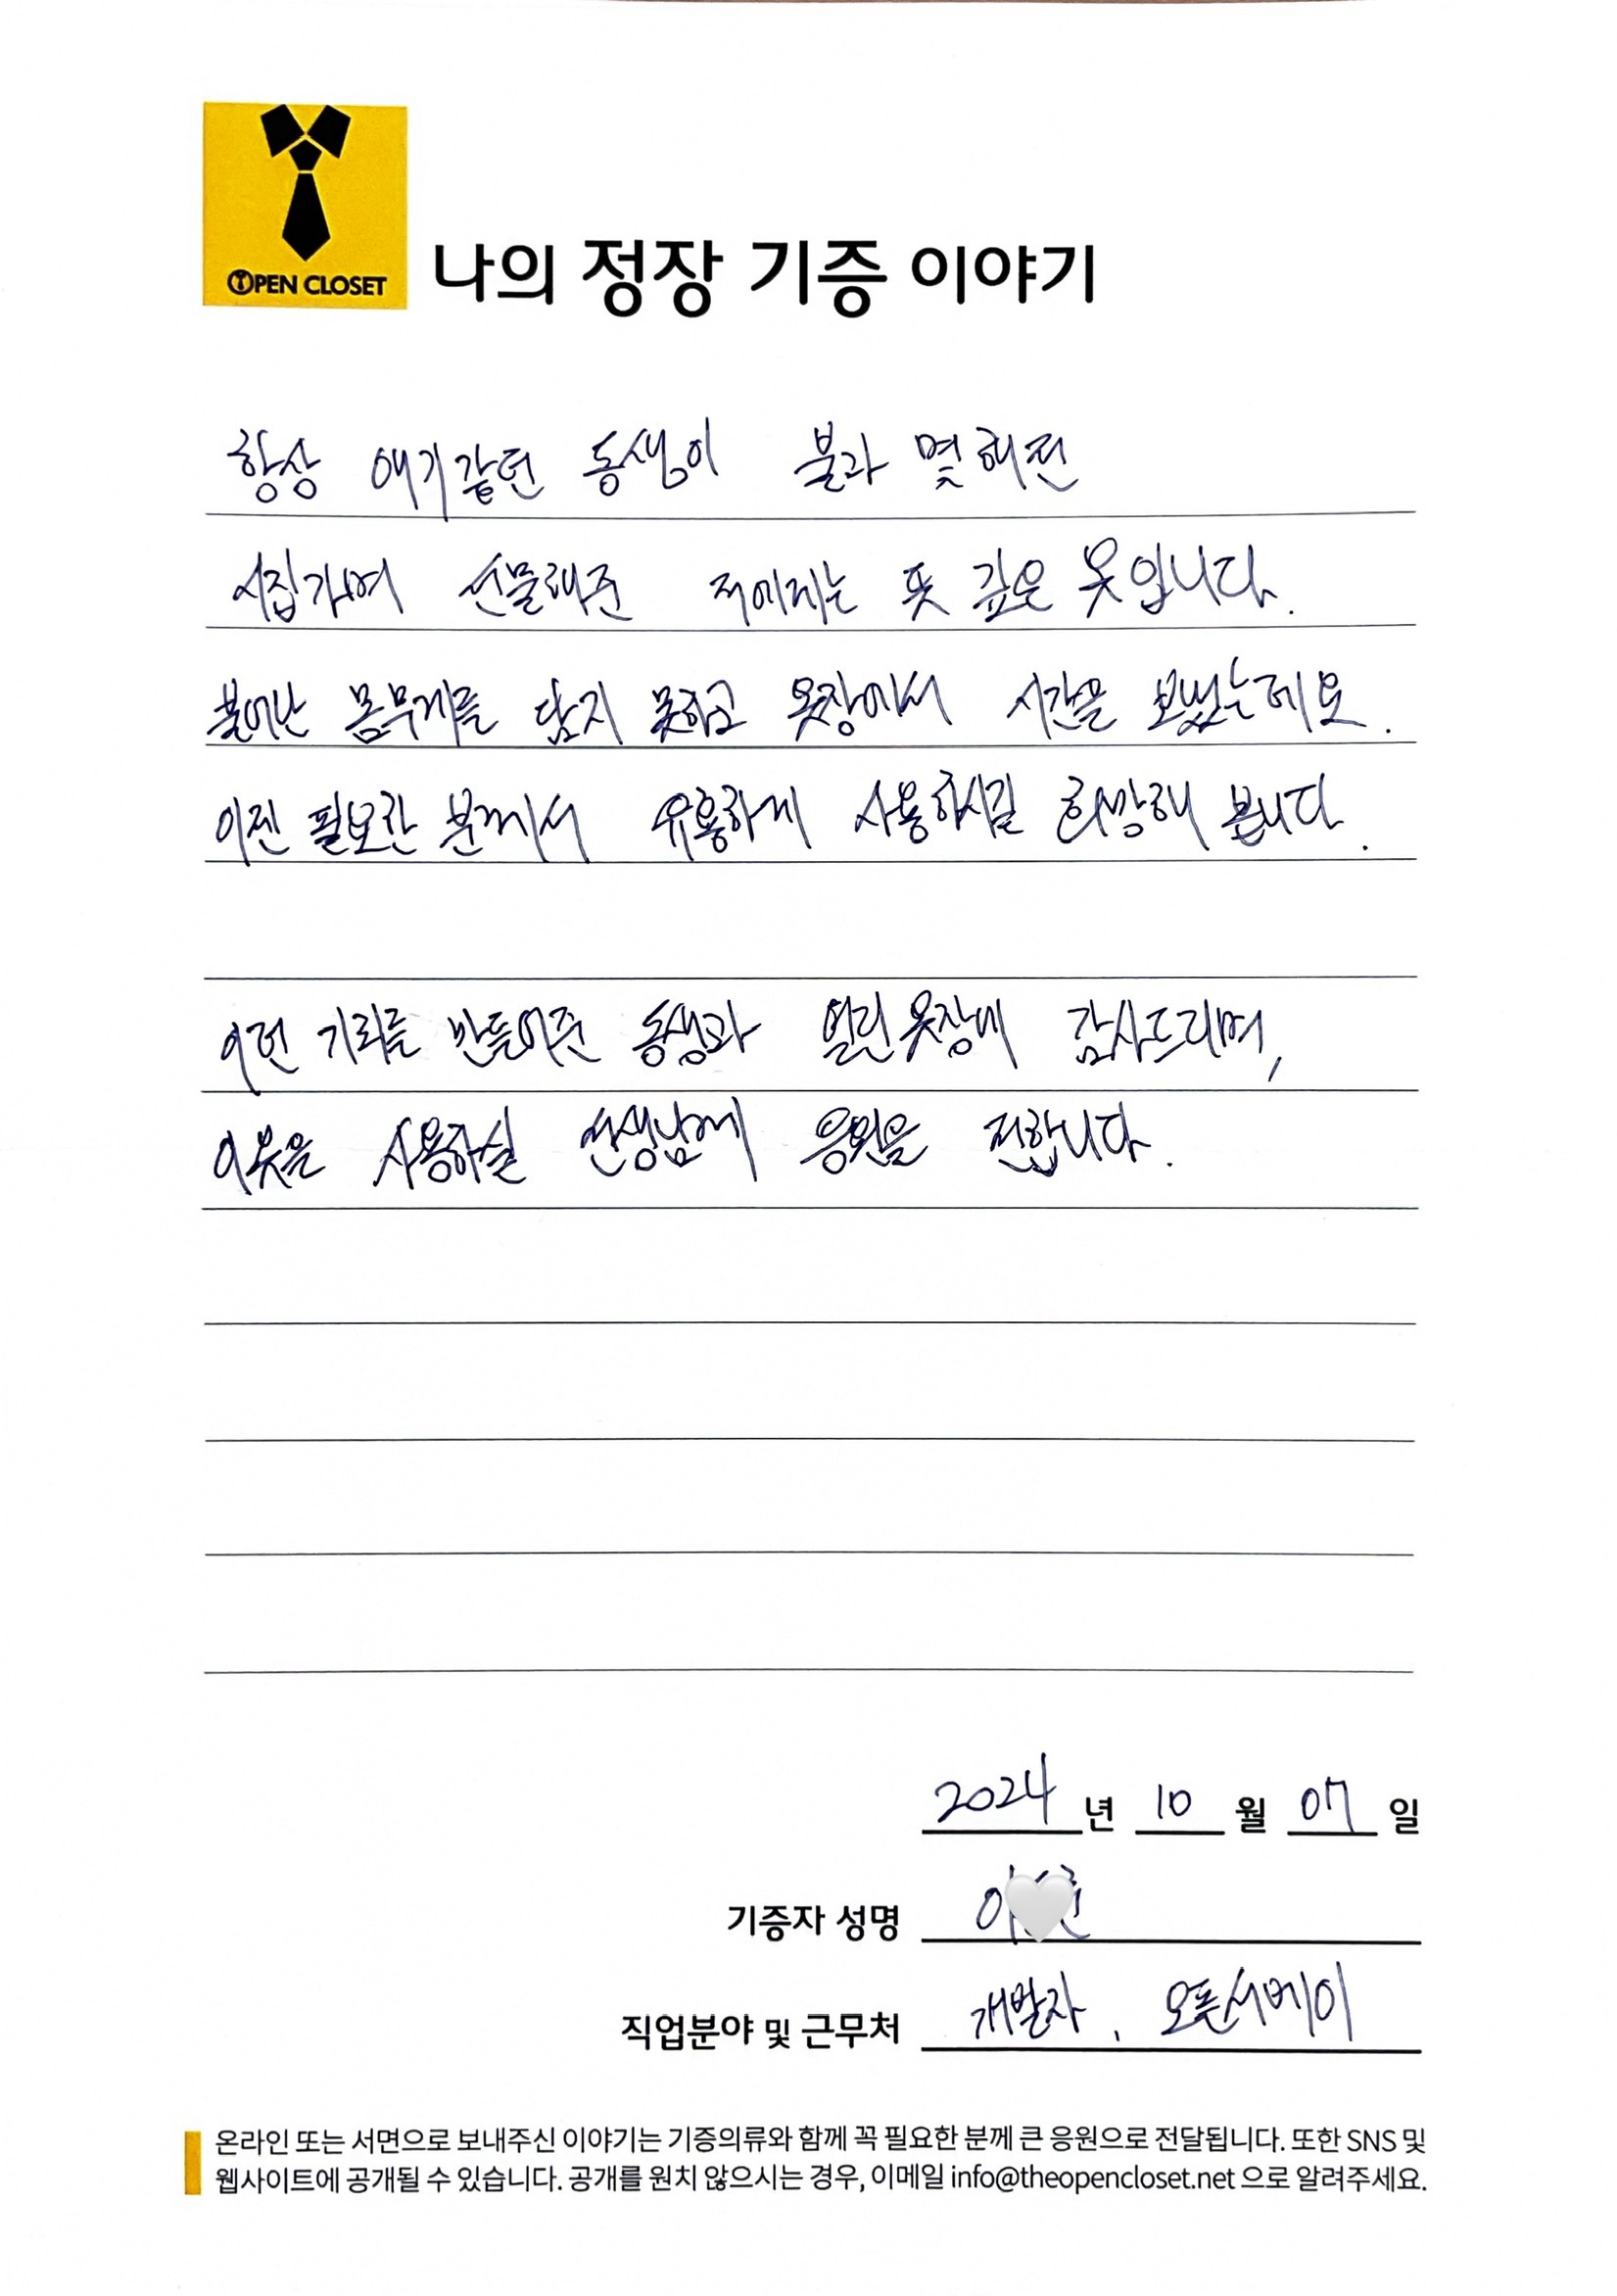 OPEN CLOSET
나의 정장 기증 이야기
항상 애기같던 동생이 불과 몇해전
시집가며 선물해준 저에게는 뜻 깊은 옷입니다.
불어난 몸무게를 담지 못하고 옷장에서 시간을 보냈었는데요.
이젠 필요한 분께서 유용하게 사용하시길 희망해 봅니다.
이런 기회를 만들어준 동생과 열린옷장에 감사드리며,
이옷을 사용하실 선생님께 응원을 전합니다.
2024 년 10 월 07 일
기증자 성명 이
직업분야 및 근무처 개발자, 오픈서베이
온라인 또는 서면으로 보내주신 이야기는 기증의류와 함께 꼭 필요한 분께 큰 응원으로 전달됩니다. 또한 SNS 및
웹사이트에 공개될 수 있습니다. 공개를 원치 않으시는 경우, 이메일 info@theopencloset.net 으로 알려주세요.